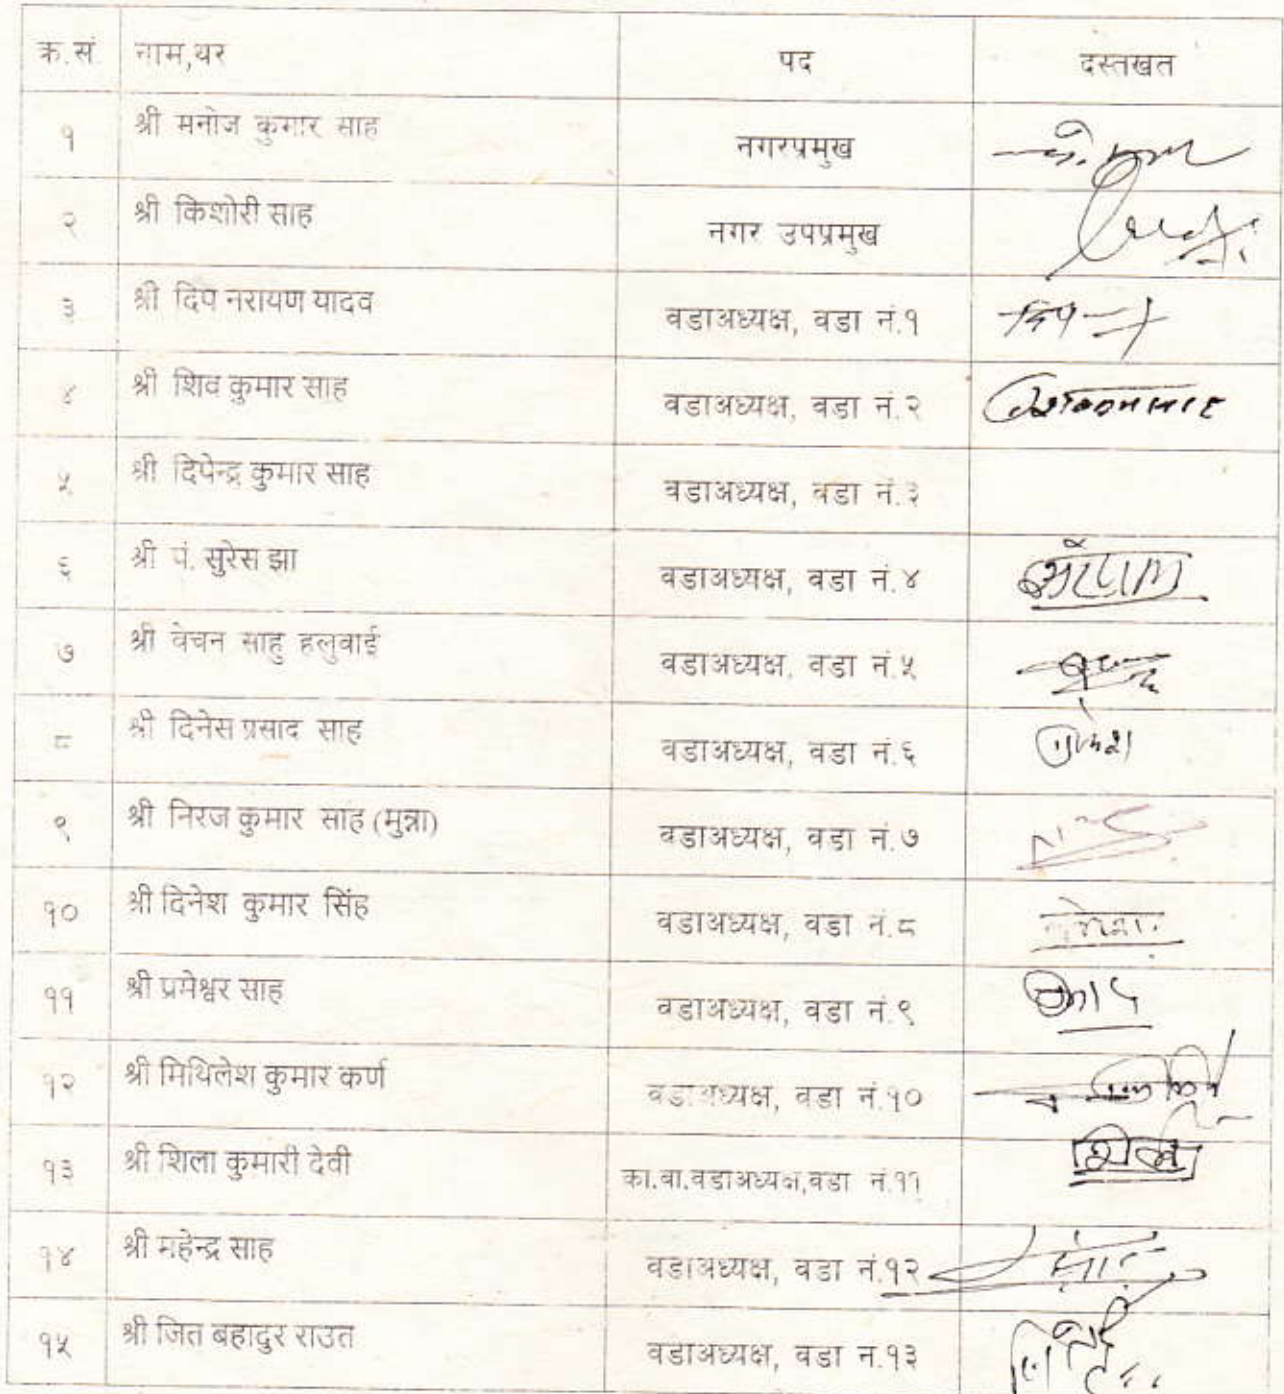 क्र.सं नाम,थर पद दस्तखत
१ श्री मनोज कुमार साह नगरप्रमुख
२ श्री किशोरी साह नगर उपप्रमुख
३ श्री दिप नरायण यादव वडाअध्यक्ष, वडा नं.१
४ श्री शिव कुमार साह वडाअध्यक्ष, वडा नं.२
५ श्री दिपेन्द्र कुमार साह वडाअध्यक्ष, वडा नं.३
६ श्री पं. सुरेस झा वडाअध्यक्ष, वडा नं.४
७ श्री वेचन साहु हलुवाई वडाअध्यक्ष, वडा नं.५
८ श्री दिनेस प्रसाद साह वडाअध्यक्ष, वडा नं.६
९ श्री निरज कुमार साह (मुन्ना) वडाअध्यक्ष, वडा नं.७
१० श्री दिनेश कुमार सिंह वडाअध्यक्ष, वडा नं.८
११ श्री प्रमेश्वर साह वडाअध्यक्ष, वडा नं.९
१२ श्री मिथिलेश कुमार कर्ण वडाअध्यक्ष, वडा नं.१०
१३ श्री शिला कुमारी देवी का.वा.वडाअध्यक्ष,वडा नं.११
१४ श्री महेन्द्र साह वडाअध्यक्ष, वडा नं.१२
१५ श्री जित बहादुर राउत वडाअध्यक्ष, वडा नं.१३